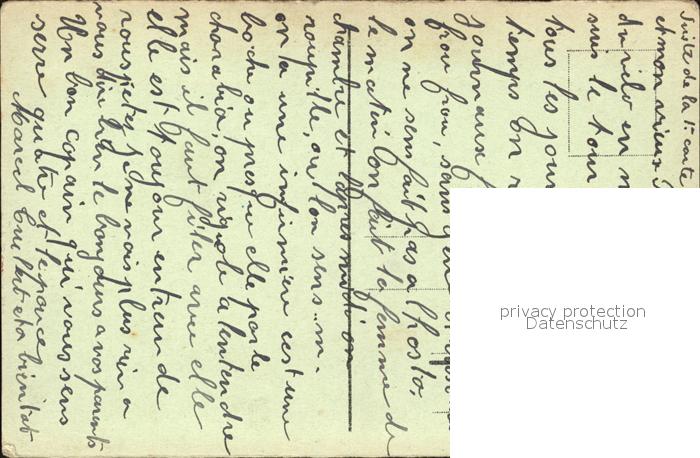 Suite de la 1e carte
et mon vieux
du velo en
suis le tour
tous les jour
temps on
Journaux
frou frou, sans
on ne sens fait pas a lhosto.
le matin on fait la femme de
chambre et lapres midi on
roupille, ou lon sens..m.
on a une infirmiere cest une
boche ou presque elle parle
charabia, on rigole a lentendre
mais il faut filer avec elle
elle est toujour entrain de
rouspeter, je ne vois plus rien a
vous dire bien le bonjour a vos parents
Un bon copain qui vous sens
serre quatre et le pouce
Marcel et a bientot
privacy protection
Datenschutz